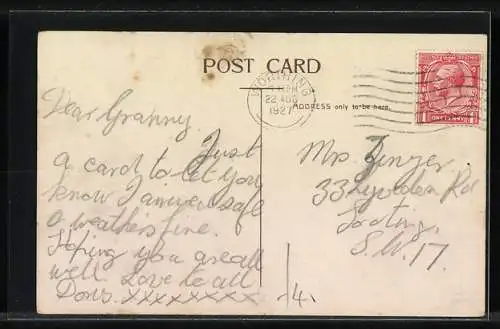 POST CARD
WORTHING
22 AUG
1927
ADDRESS only to be here.
Dear Granny
Just
a card to let you
know I arrived safe
& weathers fine.
Hoping you are all
well. Love to all
Doris. xxxxxxxxx
Mrs
33 Lyveden Rd
Tooting.
S.W.17.
14